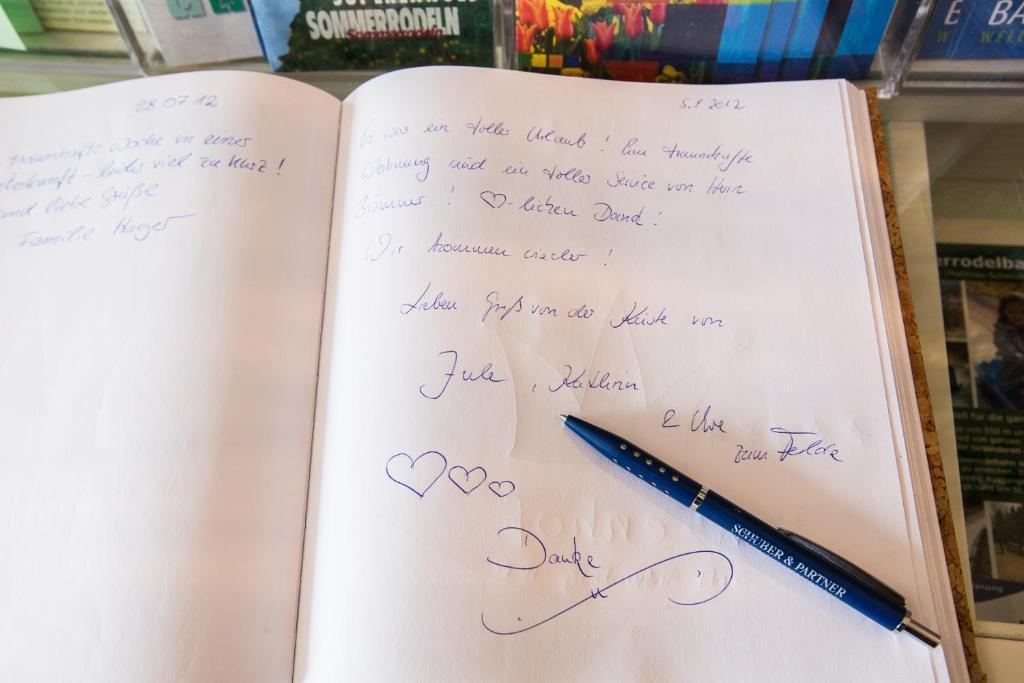 SOMMERRODELN
Sommerrodeln
E BA
W WELL
28.07.12
traumhafte Woche in einer
terkunft - leider viel zu kurz!
und liebe Grüße
Familie Hager
5.8.2012
Es war ein toller Urlaub! Eine traumhafte
Wohnung und ein toller Service von Herrn
! ♡-lichen Dank!
Wir kommen wieder!
Lieben Gruß von der Küste von
Jule, Kathrin
& Uwe
zum Felde
♡♡♡
Danke
SCHUBER & PARTNER
errodelba